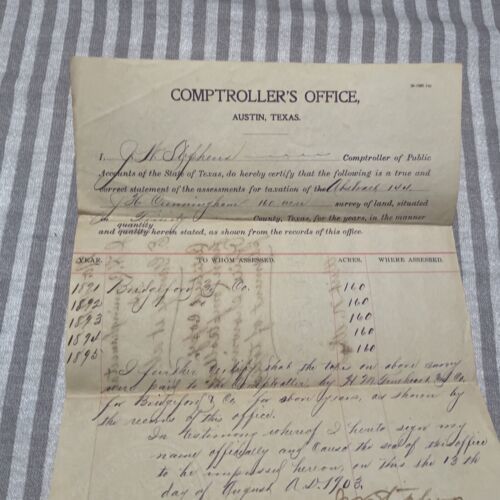 COMPTROLLER'S OFFICE,
AUSTIN, TEXAS.
I, J W Stephens Comptroller of Public
Accounts of the State of Texas, do hereby certify that the following is a true and
correct statement of the assessments for taxation of the Abstract 144
J H Cunningham 160 acre survey of land, situated
in Trinity County, Texas, for the years, in the manner
quantity
and quality herein stated, as shown from the records of this office.
YEAR. TO WHOM ASSESSED. ACRES. WHERE ASSESSED.
1891 Bridgeford & Co. 160
1892 160
1893 160
1894 160
1895 160
I further certify that the taxes on above survey
were paid to the Comptroller by H. M. & Co
for Bridgeford & Co. for above years, as shown by
the records of this office.
In testimony whereof I hereto sign my
name officially and cause the seal of this office
to be impressed hereon, on this the 13th
day of August A.D. 1903.
Stephens